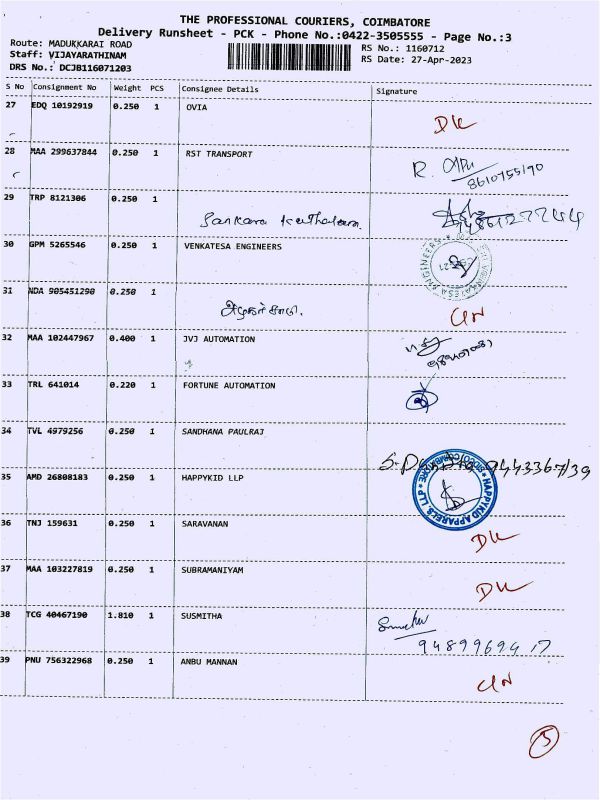 THE PROFESSIONAL COURIERS, COIMBATORE
Delivery Runsheet - PCK - Phone No.:0422-3505555 - Page No.:3
Route: MADUKKARAI ROAD RS No.: 1160712
Staff: VIJAYARATHINAM RS Date: 27-Apr-2023
DRS No.: DCJB116071203
S No Consignment No Weight PCS Consignee Details Signature
27 EDQ 10192919 0.250 1 OVIA
DL
28 MAA 299637844 0.250 1 RST TRANSPORT
R.
8610755190
29 TRP 8121306 0.250 1
Sankara
30 GPM 5265546 0.250 1 VENKATESA ENGINEERS
31 NDA 905451290 0.250 1
32 MAA 102447967 0.400 1 JVJ AUTOMATION
33 TRL 641014 0.220 1 FORTUNE AUTOMATION
34 TVL 4979256 0.250 1 SANDHANA PAULRAJ
35 AMD 26808183 0.250 1 HAPPYKID LLP
HAPPYKID APPARELS LLP
36 TNJ 159631 0.250 1 SARAVANAN
DL
37 MAA 103227819 0.250 1 SUBRAMANIYAM
DL
38 TCG 40467190 1.810 1 SUSMITHA
9489969417
39 PNU 756322968 0.250 1 ANBU MANNAN
5